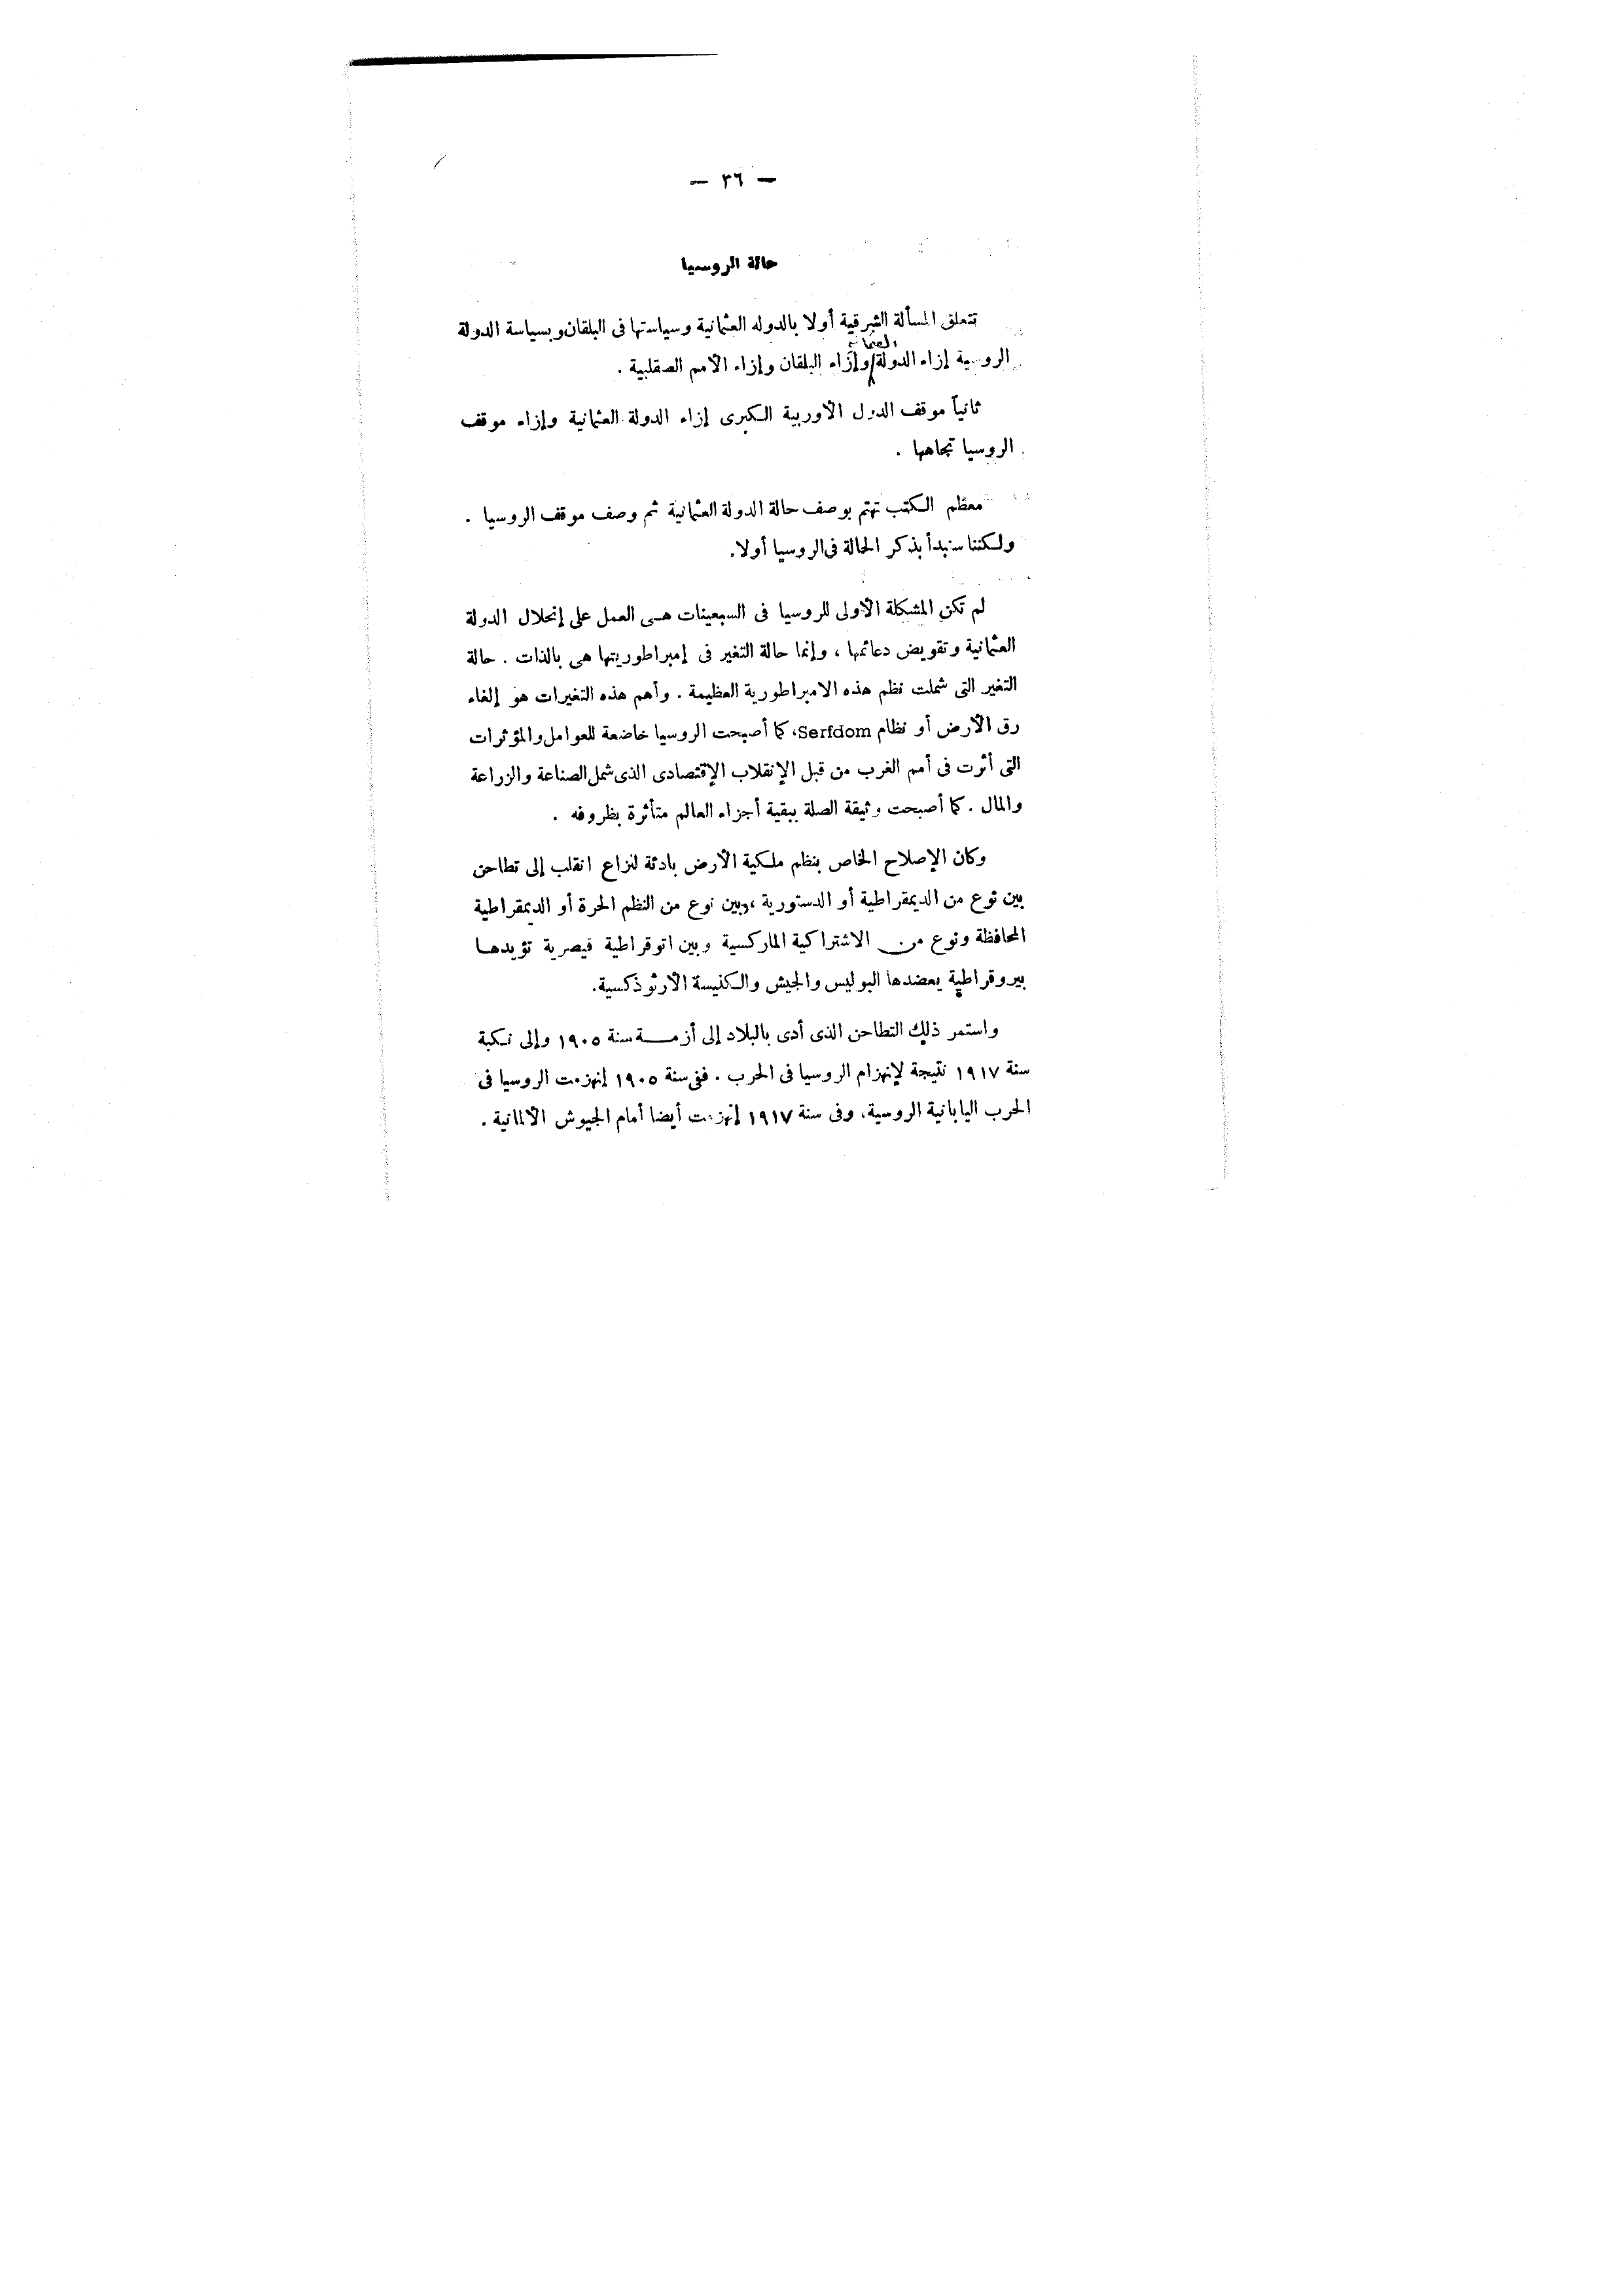 — ٣٦ —
حالة الروسيا
تتعلق المسألة الشرقية أولا بالدوله العثمانية وسياستها فى البلقان وبسياسة الدولة
العثمانية
الروسية إزاء الدولة وإزاء البلقان وإزاء الأمم الصقلبية .
ثانياً موقف الدول الأوربية الكبرى إزاء الدولة العثمانية وإزاء موقف
الروسيا تجاهها .
معظم الكتب تهتم بوصف حالة الدولة العثمانية ثم وصف موقف الروسيا .
ولكننا سنبدأ بذكر الحالة فى الروسيا أولا.
لم تكن المشكلة الأولى للروسيا فى السبعينات هى العمل على إنحلال الدولة
العثمانية وتقويض دعائمها ، وإنما حالة التغير فى إمبراطوريتها هى بالذات . حالة
التغير التى شملت نظم هذه الامبراطورية العظيمة . وأهم هذه التغيرات هو إلغاء
رق الأرض أو نظام Serfdom، كما أصبحت الروسيا خاضعة للعوامل والمؤثرات
التى أثرت فى أمم الغرب من قبل الإنقلاب الإقتصادى الذى شمل الصناعة والزراعة
والمال . كما أصبحت وثيقة الصلة ببقية أجزاء العالم متأثرة بظروفه .
وكان الإصلاح الخاص بنظم ملكية الأرض بادئة لنزاع انقلب إلى تطاحن
بين نوع من الديمقراطية أو الدستورية ، وبين نوع من النظم الحرة أو الديمقراطية
المحافظة ونوع من الاشتراكية الماركسية وبين اتوقراطية قيصرية تؤيدها
بيروقراطية يعضدها البوليس والجيش والكنيسة الأرثوذكسية.
واستمر ذلك التطاحن الذى أدى بالبلاد إلى أزمة سنة ١٩٠٥ وإلى نكبة
سنة ١٩١٧ نتيجة لإنهزام الروسيا فى الحرب . ففى سنة ١٩٠٥ إنهزمت الروسيا فى
الحرب اليابانية الروسية، وفى سنة ١٩١٧ إنهزمت أيضا أمام الجيوش الألمانية .